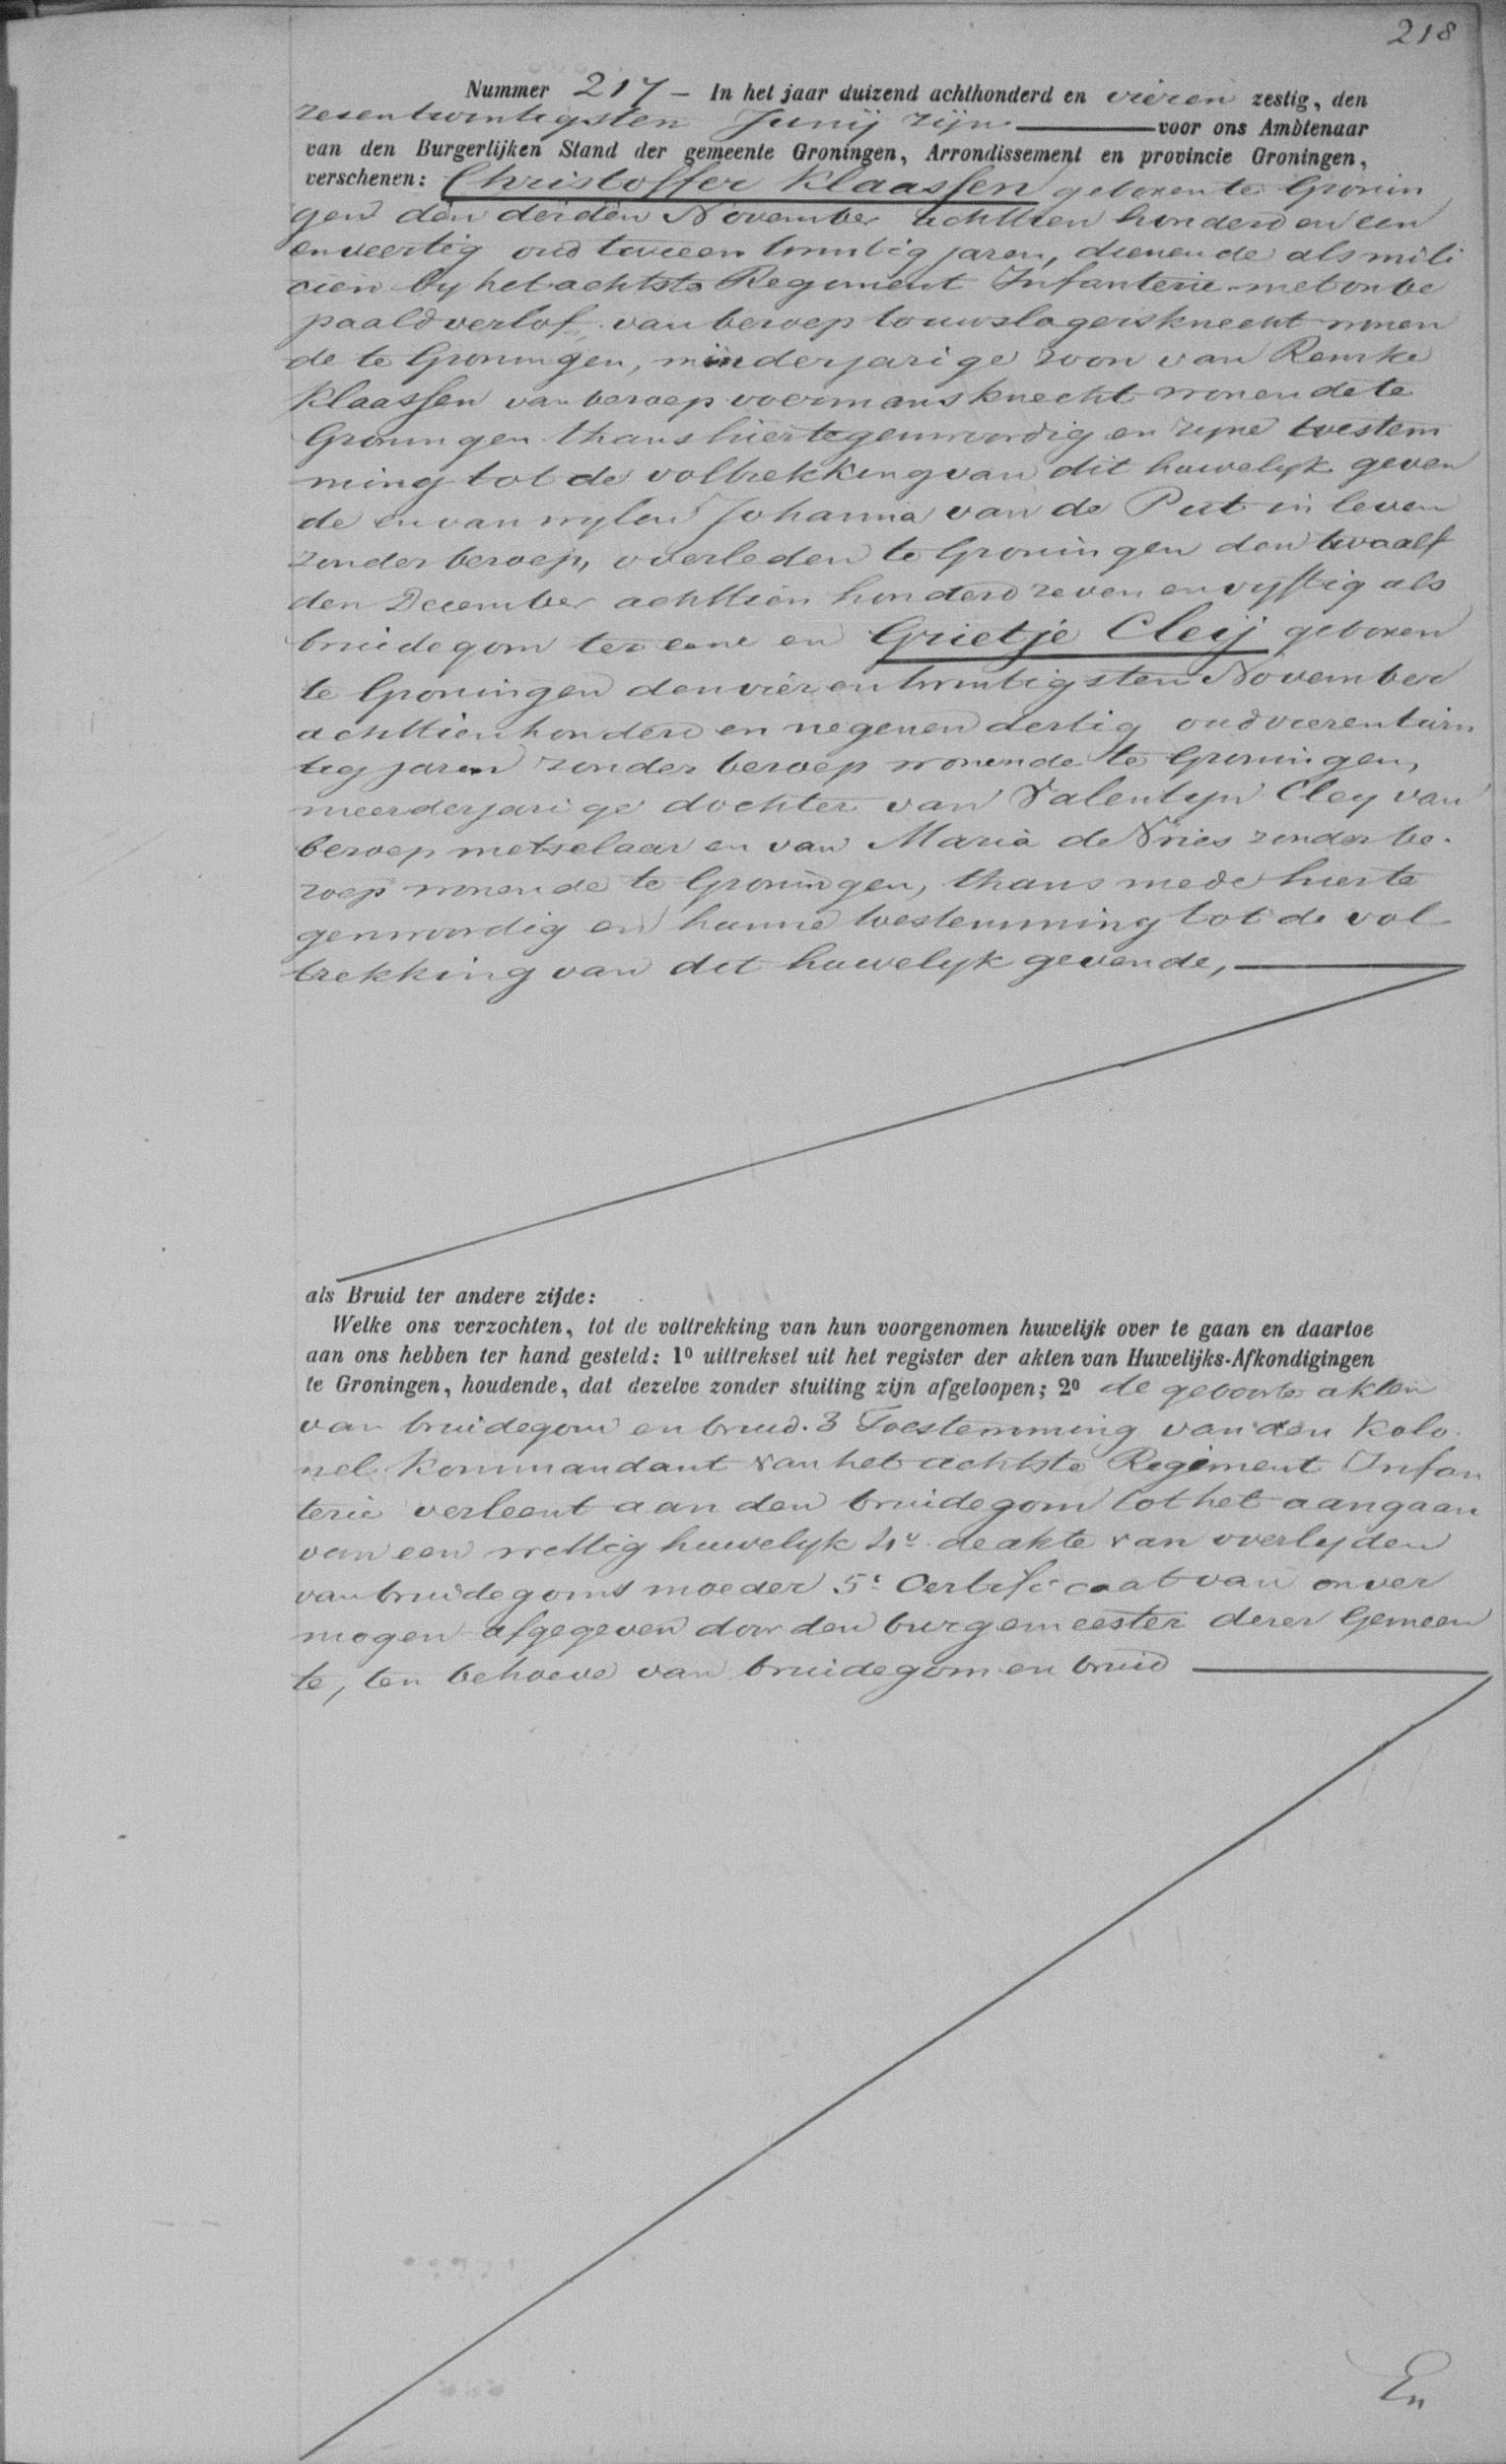 218
Nummer 217 – In het jaar duizend achthonderd en vieren zestig, den
zesentwintigsten Junij zijn voor ons Ambtenaar
van den Burgerlijken Stand der gemeente Groningen, Arrondissement en provincie Groningen,
verschenen: Christoffer Klaassen geboren te Gronin
gen den derden November achttien honderd en een
en veertig oud twee en twintig jaren, dienende als mili
cien by het achtste Regiment Infanterie met onbe
paald verlof van beroep touwslagersknecht wonen
de te Groningen, minderjarige zoon van Remke
Klaassen van beroep voermansknecht wonende te
Groningen thans hier tegenwoordig en zyne toestem
ming tot de voltrekking van dit huwelyk geven
de en van wylen Johanna van de Put in leven
zonder beroep, overleden te Groningen den twaalf
den December achttien honderd zeven en vyftig als
bruidegom ter eene en Grietje Cleij geboren
te Groningen den vier en twintigsten November
achttien honderd en negenen dertig oud vierentwin
tig jaren zonder beroep wonende te Groningen,
meerderjarige dochter van Valentyn Cley van
beroep metselaar en van Maria de Vries zonder be-
roep wonende te Groningen, thans mede hier te
genwoordig en hunne toestemming tot de vol
trekking van dit huwelyk gevende,
als Bruid ter andere zijde:
Welke ons verzochten, tot de voltrekking van hun voorgenomen huwelijk over te gaan en daartoe
aan ons hebben ter hand gesteld: 1º uittreksel uit het register der akten van Huwelijks-Afkondigingen
te Groningen, houdende, dat dezelve zonder stuiting zijn afgeloopen; 2º de geboorte akten
van bruidegom en bruid. 3 Toestemming van den Kolo-
nel Kommandant van het achtste Regiment Infan
terie verleent aan den bruidegom tot het aangaan
van een wettig huwelyk 4º de akte van overlyden
van bruidegoms moeder 5º Certificaat van onver
mogen afgegeven door den burgemeester dezer Gemeen
te, ten behoeve van bruidegom en bruid
En